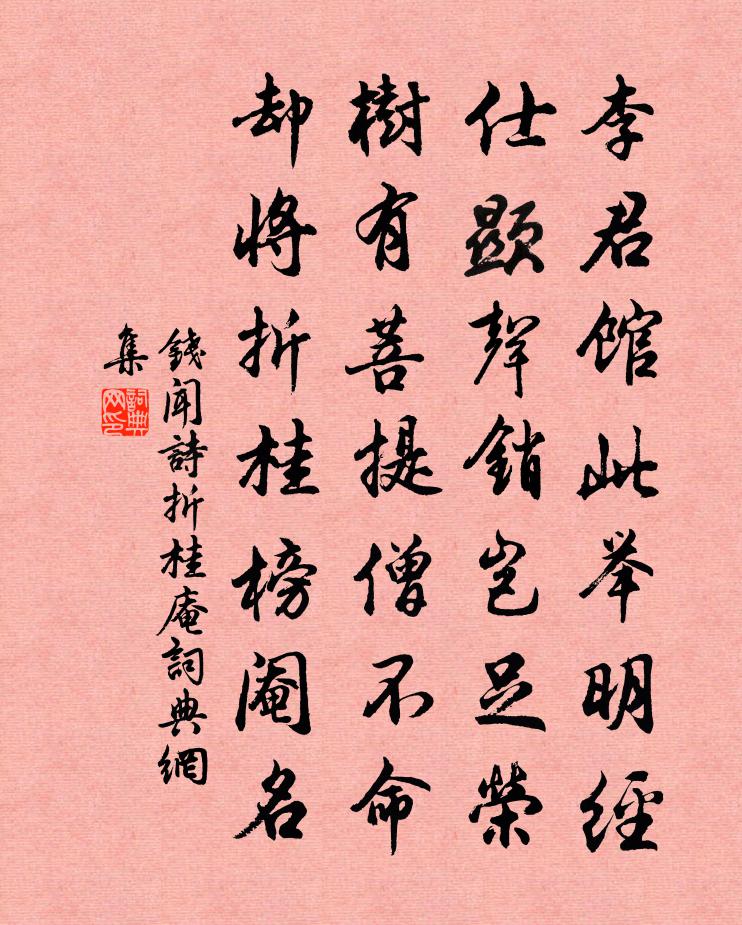 李君館此举明經
仕顯聲銷岂足榮
樹有菩提僧不命
却將折桂榜阉名
錢闻詩折桂庵詞典網
集
詞典
网印